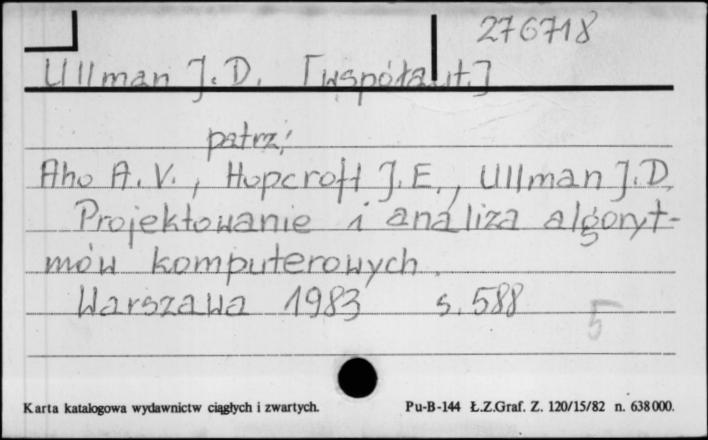 276718
Ullman J. D. [współaut.]
patrz:
Aho A. V., Hopcroft J. E., Ullman J. D.
Projektowanie i analiza algoryt-
mów komputerowych.
Warszawa 1983 s. 588
5
Karta katalogowa wydawnictw ciągłych i zwartych. Pu-B-144 Ł.Z.Graf. Z. 120/15/82 n. 638 000.